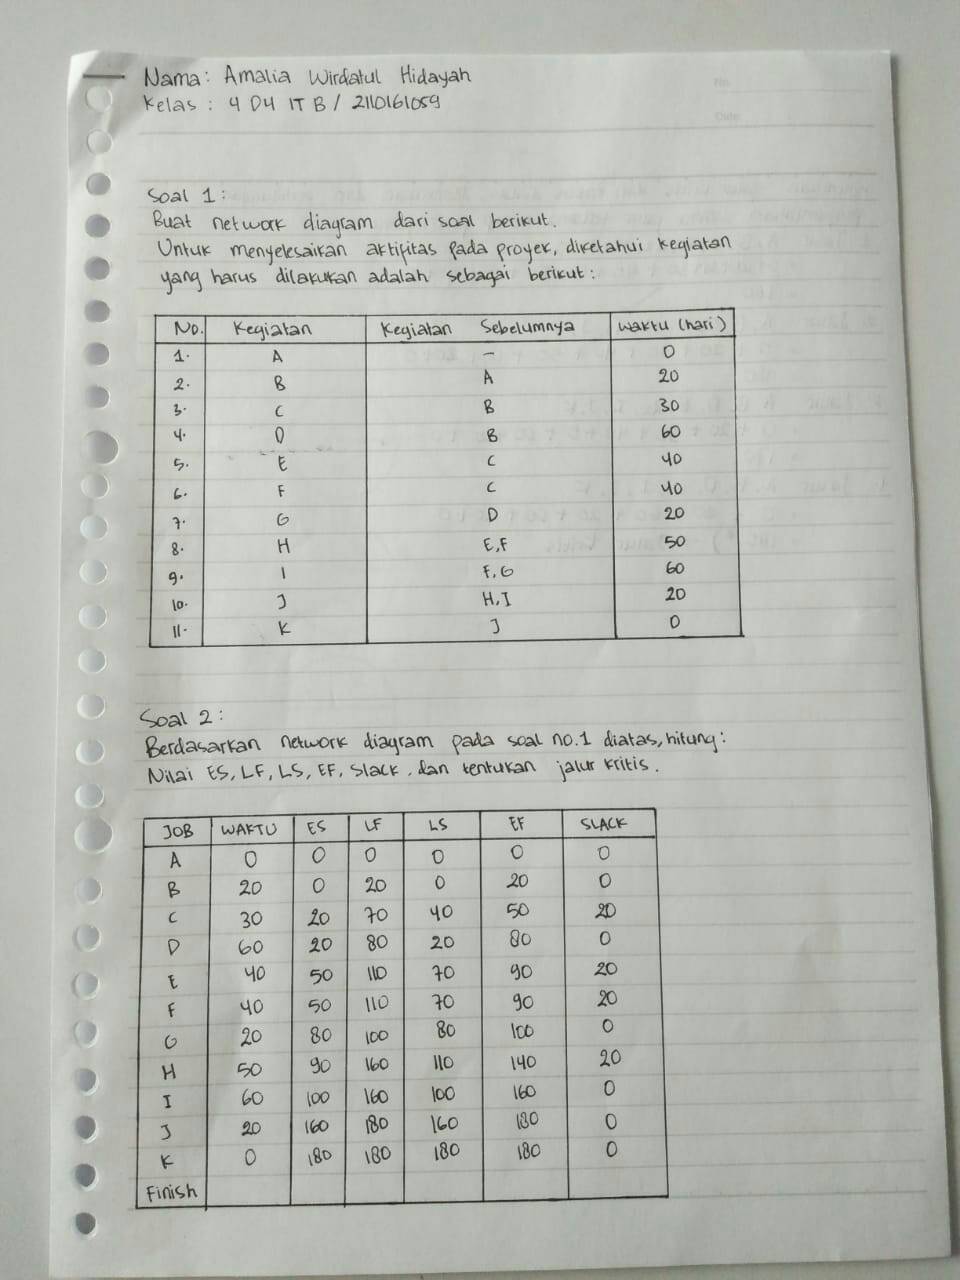 Nama: Amalia Wirdatul Hidayah
Kelas : 4 D4 IT B / 2110161059
No.
Date
Soal 1 :
Buat network diagram dari soal berikut.
Untuk menyelesaikan aktifitas pada proyek, diketahui kegiatan
yang harus dilakukan adalah sebagai berikut :
No. Kegiatan Kegiatan Sebelumnya Waktu (hari)
1. A - 0
2. B A 20
3. C B 30
4. D B 60
5. E C 40
6. F C 40
7. G D 20
8. H E,F 50
9. I F,G 60
10. J H,I 20
11. K J 0
Soal 2 :
Berdasarkan network diagram pada soal no.1 diatas, hitung :
Nilai ES, LF, LS, EF, Slack, dan tentukan jalur kritis.
JOB WAKTU ES LF LS EF SLACK
A 0 0 0 0 0 0
B 20 0 20 0 20 0
C 30 20 70 40 50 20
D 60 20 80 20 80 0
E 40 50 110 70 90 20
F 40 50 110 70 90 20
G 20 80 100 80 100 0
H 50 90 160 110 140 20
I 60 100 160 100 160 0
J 20 160 180 160 180 0
K 0 180 180 180 180 0
Finish